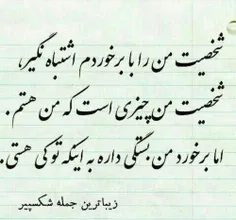 شخصیت من را با برخوردم اشتباه نگیر،
شخصیت من چیزی است که من هستم.
اما برخورد من بستگی داره به اینکه تو کی هستی.
زیباترین جمله شکسپیر